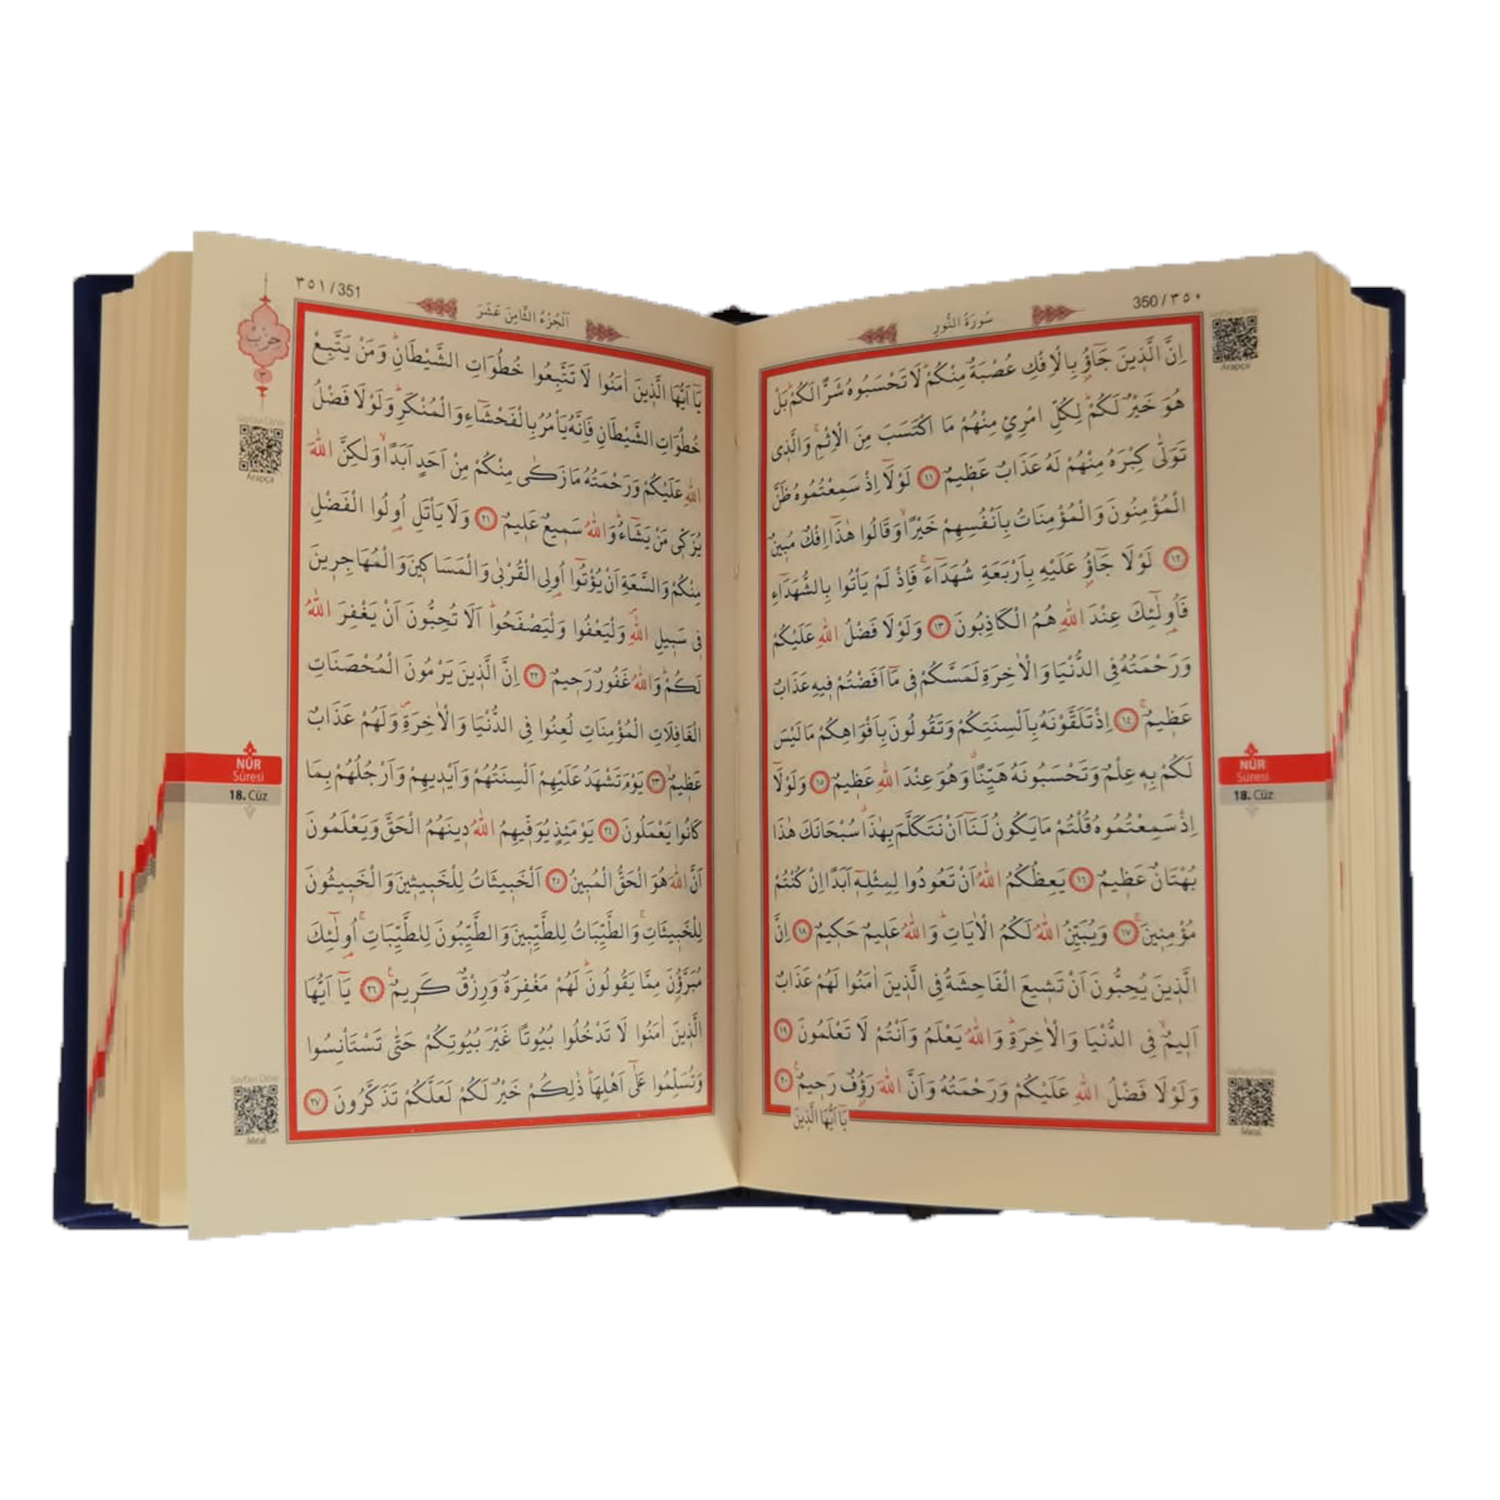 350 / ٣٥٠
سُورَةُ النُّورِ
اِنَّ الَّذ۪ينَ جَٓاؤُ۫ بِالْاِفْكِ عُصْبَةٌ مِنْكُمْۜ لَا تَحْسَبُوهُ شَرًّا لَكُمْۜ بَلْ
هُوَ خَيْرٌ لَكُمْۜ لِكُلِّ امْرِئٍ مِنْهُمْ مَا اكْتَسَبَ مِنَ الْاِثْمِۚ وَالَّذ۪ي
تَوَلّٰى كِبْرَهُ مِنْهُمْ لَهُ عَذَابٌ عَظ۪يمٌ ﴿١١﴾ لَوْلَٓا اِذْ سَمِعْتُمُوهُ ظَنَّ
الْمُؤْمِنُونَ وَالْمُؤْمِنَاتُ بِاَنْفُسِهِمْ خَيْرًاۙ وَقَالُوا هٰذَٓا اِفْكٌ مُب۪ينٌ
﴿١٢﴾ لَوْلَا جَٓاؤُ۫ عَلَيْهِ بِاَرْبَعَةِ شُهَدَٓاءَۚ فَاِذْ لَمْ يَأْتُوا بِالشُّهَدَٓاءِ
فَاُو۬لٰٓئِكَ عِنْدَ اللّٰهِ هُمُ الْكَاذِبُونَ ﴿١٣﴾ وَلَوْلَا فَضْلُ اللّٰهِ عَلَيْكُمْ
وَرَحْمَتُهُ فِي الدُّنْيَا وَالْاٰخِرَةِ لَمَسَّكُمْ ف۪ي مَٓا اَفَضْتُمْ ف۪يهِ عَذَابٌ
عَظ۪يمٌۚ ﴿١٤﴾ اِذْ تَلَقَّوْنَهُ بِاَلْسِنَتِكُمْ وَتَقُولُونَ بِاَفْوَاهِكُمْ مَا لَيْسَ
لَكُمْ بِه۪ عِلْمٌ وَتَحْسَبُونَهُ هَيِّنًاۗ وَهُوَ عِنْدَ اللّٰهِ عَظ۪يمٌ ﴿١٥﴾ وَلَوْلَٓا
اِذْ سَمِعْتُمُوهُ قُلْتُمْ مَا يَكُونُ لَنَٓا اَنْ نَتَكَلَّمَ بِهٰذَاۗ سُبْحَانَكَ هٰذَا
بُهْتَانٌ عَظ۪يمٌ ﴿١٦﴾ يَعِظُكُمُ اللّٰهُ اَنْ تَعُودُوا لِمِثْلِه۪ٓ اَبَدًا اِنْ كُنْتُمْ
مُؤْمِن۪ينَۚ ﴿١٧﴾ وَيُبَيِّنُ اللّٰهُ لَكُمُ الْاٰيَاتِۜ وَاللّٰهُ عَل۪يمٌ حَك۪يمٌ ﴿١٨﴾ اِنَّ
الَّذ۪ينَ يُحِبُّونَ اَنْ تَش۪يعَ الْفَاحِشَةُ فِي الَّذ۪ينَ اٰمَنُوا لَهُمْ عَذَابٌ
اَل۪يمٌۙ فِي الدُّنْيَا وَالْاٰخِرَةِۜ وَاللّٰهُ يَعْلَمُ وَاَنْتُمْ لَا تَعْلَمُونَ ﴿١٩﴾
وَلَوْلَا فَضْلُ اللّٰهِ عَلَيْكُمْ وَرَحْمَتُهُ وَاَنَّ اللّٰهَ رَؤُ۫فٌ رَح۪يمٌ۟ ﴿٢٠﴾
يَٓا اَيُّهَا الَّذ۪ينَ
Arapça
NÛR
Sûresi
18. Cüz
Meal
٣٥١ / 351
اَلْجُزْءُ الثَّامِنَ عَشَرَ
يَٓا اَيُّهَا الَّذ۪ينَ اٰمَنُوا لَا تَتَّبِعُوا خُطُوَاتِ الشَّيْطَانِۜ وَمَنْ يَتَّبِعْ
خُطُوَاتِ الشَّيْطَانِ فَاِنَّهُ يَأْمُرُ بِالْفَحْشَٓاءِ وَالْمُنْكَرِۜ وَلَوْلَا فَضْلُ
اللّٰهِ عَلَيْكُمْ وَرَحْمَتُهُ مَا زَكٰى مِنْكُمْ مِنْ اَحَدٍ اَبَدًاۙ وَلٰكِنَّ اللّٰهَ
يُزَكّ۪ي مَنْ يَشَٓاءُۜ وَاللّٰهُ سَم۪يعٌ عَل۪يمٌ ﴿٢١﴾ وَلَا يَأْتَلِ اُو۬لُوا الْفَضْلِ
مِنْكُمْ وَالسَّعَةِ اَنْ يُؤْتُٓوا اُو۬لِي الْقُرْبٰى وَالْمَسَاك۪ينَ وَالْمُهَاجِر۪ينَ
ف۪ي سَب۪يلِ اللّٰهِۖ وَلْيَعْفُوا وَلْيَصْفَحُواۜ اَلَا تُحِبُّونَ اَنْ يَغْفِرَ اللّٰهُ
لَكُمْۜ وَاللّٰهُ غَفُورٌ رَح۪يمٌ ﴿٢٢﴾ اِنَّ الَّذ۪ينَ يَرْمُونَ الْمُحْصَنَاتِ
الْغَافِلَاتِ الْمُؤْمِنَاتِ لُعِنُوا فِي الدُّنْيَا وَالْاٰخِرَةِۖ وَلَهُمْ عَذَابٌ
عَظ۪يمٌۙ ﴿٢٣﴾ يَوْمَ تَشْهَدُ عَلَيْهِمْ اَلْسِنَتُهُمْ وَاَيْد۪يهِمْ وَاَرْجُلُهُمْ بِمَا
كَانُوا يَعْمَلُونَ ﴿٢٤﴾ يَوْمَئِذٍ يُوَفّ۪يهِمُ اللّٰهُ د۪ينَهُمُ الْحَقَّ وَيَعْلَمُونَ
اَنَّ اللّٰهَ هُوَ الْحَقُّ الْمُب۪ينُ ﴿٢٥﴾ اَلْخَب۪يثَاتُ لِلْخَب۪يث۪ينَ وَالْخَب۪يثُونَ
لِلْخَب۪يثَاتِۚ وَالطَّيِّبَاتُ لِلطَّيِّب۪ينَ وَالطَّيِّبُونَ لِلطَّيِّبَاتِۚ اُو۬لٰٓئِكَ
مُبَرَّؤُ۫نَ مِمَّا يَقُولُونَۜ لَهُمْ مَغْفِرَةٌ وَرِزْقٌ كَر۪يمٌ۟ ﴿٢٦﴾ يَٓا اَيُّهَا
الَّذ۪ينَ اٰمَنُوا لَا تَدْخُلُوا بُيُوتًا غَيْرَ بُيُوتِكُمْ حَتّٰى تَسْتَأْنِسُوا
وَتُسَلِّمُوا عَلٰٓى اَهْلِهَاۜ ذٰلِكُمْ خَيْرٌ لَكُمْ لَعَلَّكُمْ تَذَكَّرُونَ ﴿٢٧﴾
حِزْبٌ
Arapça
NÛR
Sûresi
18. Cüz
Meal